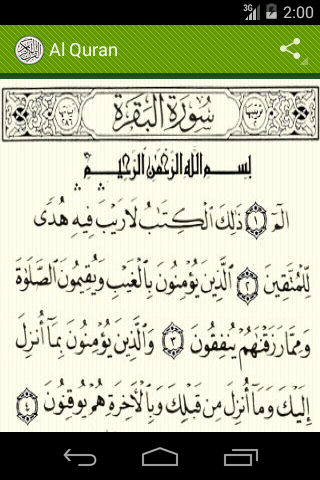 3G 2:00
Al Quran
سُورَةُ الْبَقَرَة
بِسْمِ اللَّهِ الرَّحْمَٰنِ الرَّحِيمِ
الٓمٓ ١ ذَٰلِكَ الْكِتَٰبُ لَا رَيْبَ فِيهِ هُدًى
لِّلْمُتَّقِينَ ٢ الَّذِينَ يُؤْمِنُونَ بِالْغَيْبِ وَيُقِيمُونَ الصَّلَوٰةَ
وَمِمَّا رَزَقْنَٰهُمْ يُنفِقُونَ ٣ وَالَّذِينَ يُؤْمِنُونَ بِمَآ أُنزِلَ
إِلَيْكَ وَمَآ أُنزِلَ مِن قَبْلِكَ وَبِالْآخِرَةِ هُمْ يُوقِنُونَ ٤